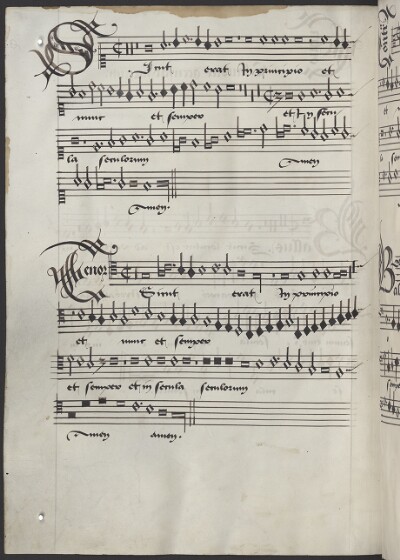 Sicut erat In principio et
nunc et semper et In secu
la seculorum Amen
Amen.
Tenor
Sicut erat In principio
et nunc et semper
et semper et in secula seculorum
Amen amen.